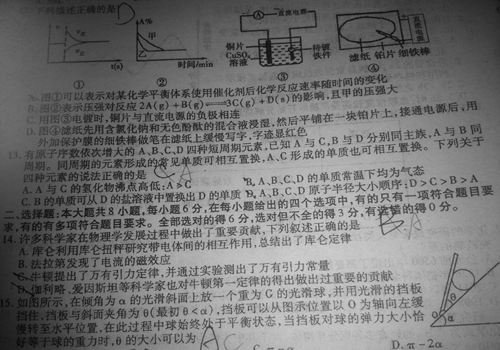 12. 下列叙述正确的是
v
v正
v逆
t(s)
①
A%
甲
乙
时间/min
②
A 直流电源
铜片
CuSO4
溶液
待镀
铁件
③
直流电源
滤纸 铂片 细铁棒
④
A. 图①可以表示对某化学平衡体系使用催化剂后化学反应速率随时间的变化
B. 图②表示压强对反应2A(g)+B(g)⇌3C(g)+D(s)的影响,且甲的压强大
C. 用图③电镀时,铜片与直流电源的负极相连
D. 图④滤纸先用含氯化钠和无色酚酞的混合液浸湿,然后平铺在一块铂片上,接通电源后,用
外加保护膜的细铁棒做笔在滤纸上缓慢写字,字迹显红色
13. 有原子序数依次增大的A、B、C、D四种短周期元素,已知A与C、B与D分别同主族,A与B同
周期。同周期的元素形成的常见单质可相互置换,A、C形成的单质也可相互置换。下列关于
四种元素的说法正确的是
A. A与C的氢化物沸点高低:A>C
B. A、B、C、D的单质常温下均为气态
C. B的单质可从D的盐溶液中置换出D的单质
D. A、B、C、D原子半径大小顺序:D>C>B>A
二、选择题:本大题共8小题,每小题6分,在每小题给出的四个选项中,有的只有一项符合题目要
求,有的有多项符合题目要求。全部选对的得6分,选对但不全的得3分,有选错的得0分。
14. 许多科学家在物理学发展过程中做出了重要贡献,下列叙述正确的是
A. 库仑利用库仑扭秤研究带电体间的相互作用,总结出了库仑定律
B. 法拉第发现了电流的磁效应
C. 牛顿提出了万有引力定律,并通过实验测出了万有引力常量
D. 伽利略、爱因斯坦等科学家也对牛顿第一定律的得出做出过重要的贡献
15. 如图所示,在倾角为α的光滑斜面上放一个重为G的光滑球,并用光滑的挡板
挡住,挡板与斜面夹角为θ(最初θ<α),挡板可以从图示位置以O为轴向左缓
慢转至水平位置,在此过程中球始终处于平衡状态,当挡板对球的弹力大小恰
好等于球的重力时,θ的大小可以为
D. π-2α